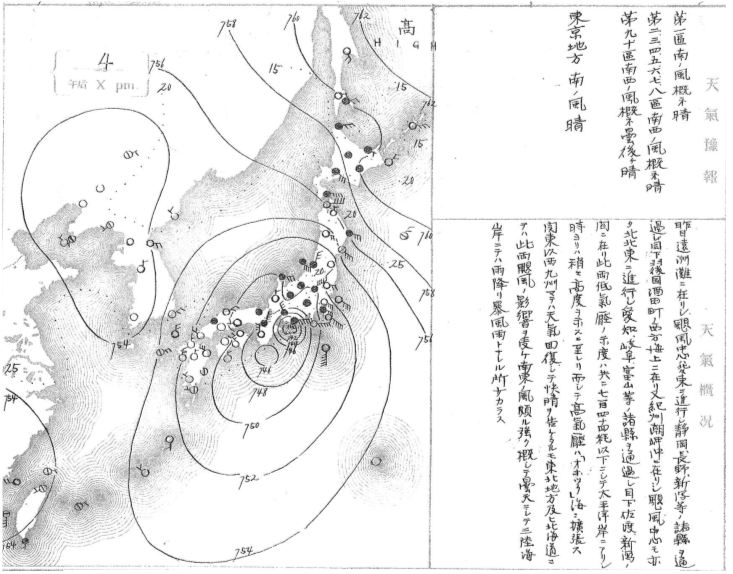 天氣豫報
第一區南ノ風概ネ晴
第二、三、四、五、六、七、八區南西ノ風概ネ晴
第九、十區南西ノ風概ネ曇後晴
東京地方 南ノ風 晴
天氣概況
昨日遠洲灘ニ在リシ颶風中心ハ北東ニ進行シ静岡、長野、新潟等ノ諸縣ヲ通
過シ目下羽後国酒田町ノ西方海上ニ在リ又紀州潮岬沖ニ在リシ颶風中心モ亦
北北東ニ進行シ愛知、岐阜、富山等ノ諸縣ヲ通過シ目下佐渡、新潟ノ
間ニ在リ此両低氣壓ノ示度ハ共ニ七百四十四粍以下ニシテ太平洋岸ニアリシ
時ヨリハ稍々高度ヲ示スニ至レリ而シテ高氣壓ハオホツク海ニ擴張ス
関東以西九州マデハ天氣回復シテ快晴ヲ告ケタルモ東北地方及ヒ北海道ニ
テハ此両颶風ノ影響ヲ受ケ南東ノ風頗ル強ク概シテ曇天ニシテ三陸海
岸ニテハ雨降リ暴風雨トナレル所少カラス
高
HIGH
4
午后 X pm
758
760
762
756
15
15
20
762
15
20
20
760
25
758
756
754
25
754
20
746
748
750
752
754
754